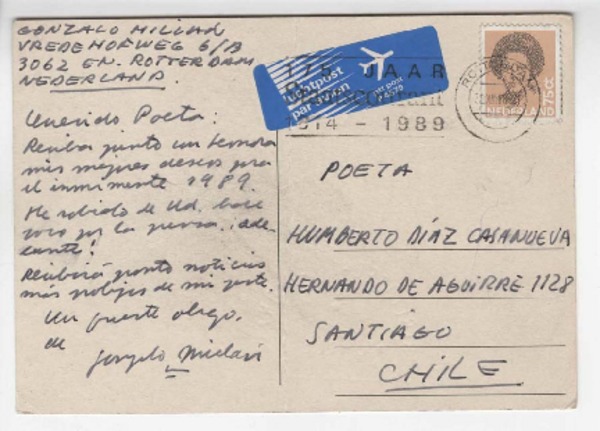 GONZALO MILLAN
VREDEHOFWEG 6/B
3062 EN. ROTTERDAM
NEDERLAND.
Querido Poeta:
Reciba junto con Leonora
mis mejores deseos para
el inminente 1989.
He sabido de Ud. hace
poco por la prensa. ¡Ade-
lante!
Recibirá pronto noticias
más prolijas de mi parte.
Un fuerte abrazo,
de
Gonzalo Millán
luchtpost
par avion
JAAR
1614 - 1989
NEDERLAND 75ct
POETA
HUMBERTO DÍAZ CASANUEVA
HERNANDO DE AGUIRRE 1128
SANTIAGO
CHILE